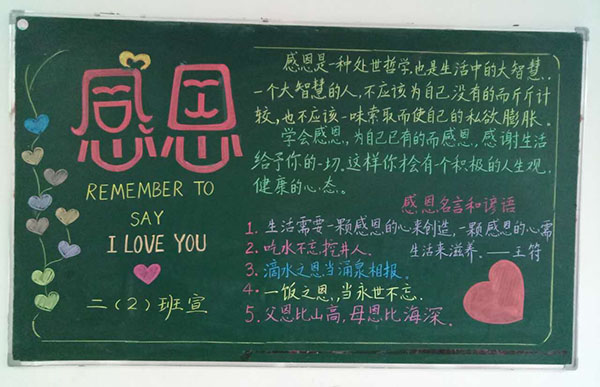 感恩
REMEMBER TO
SAY
I LOVE YOU
二(2)班宣
感恩是一种处世哲学,也是生活中的大智慧.
一个大智慧的人,不应该为自己没有的而斤斤计
较,也不应该一味索取而使自己的私欲膨胀。
学会感恩,为自己已有的而感恩,感谢生活
给予你的一切.这样你才会有个积极的人生观,
健康的心态。
感恩名言和谚语
1. 生活需要一颗感恩的心来创造,一颗感恩的心需
生活来滋养.——王符
2. 吃水不忘挖井人.
3. 滴水之恩当涌泉相报.
4. 一饭之恩,当永世不忘.
5. 父恩比山高,母恩比海深.